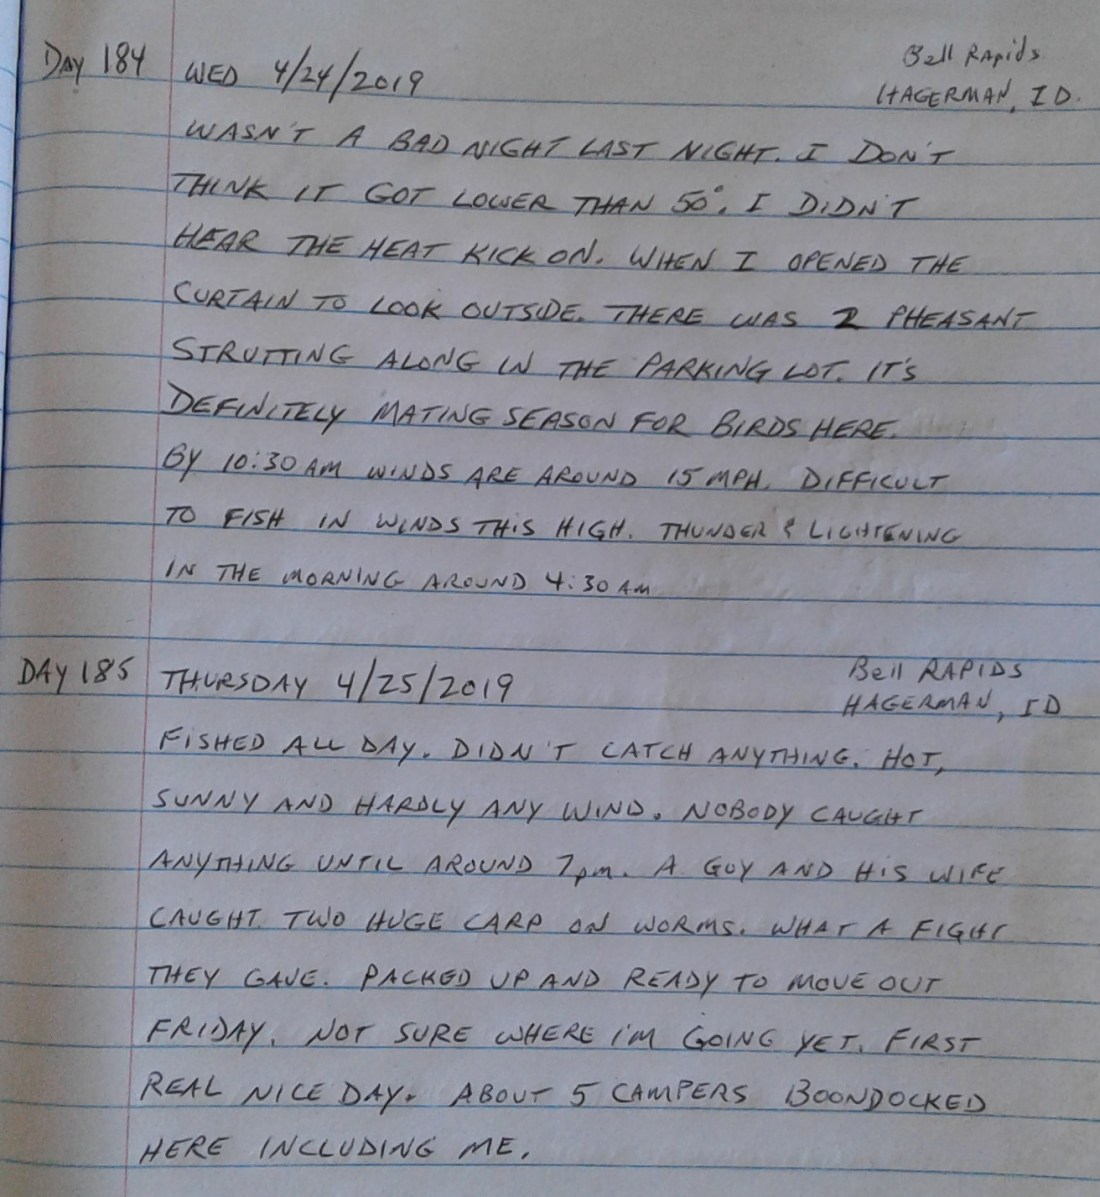 Day 184 WED 4/24/2019 Bell Rapids
HAGERMAN, ID.
WASN'T A BAD NIGHT LAST NIGHT. I DON'T
THINK IT GOT LOWER THAN 50°. I DIDN'T
HEAR THE HEAT KICK ON. WHEN I OPENED THE
CURTAIN TO LOOK OUTSIDE. THERE WAS 2 PHEASANT
STRUTTING ALONG IN THE PARKING LOT. IT'S
DEFINITELY MATING SEASON FOR BIRDS HERE.
BY 10:30 AM WINDS ARE AROUND 15 MPH. DIFFICULT
TO FISH IN WINDS THIS HIGH. THUNDER & LIGHTENING
IN THE MORNING AROUND 4:30 AM
DAY 185 THURSDAY 4/25/2019 Bell RAPIDS
HAGERMAN, ID
FISHED ALL DAY. DIDN'T CATCH ANYTHING. HOT,
SUNNY AND HARDLY ANY WIND. NOBODY CAUGHT
ANYTHING UNTIL AROUND 7pm. A GUY AND HIS WIFE
CAUGHT TWO HUGE CARP ON WORMS. WHAT A FIGHT
THEY GAVE. PACKED UP AND READY TO MOVE OUT
FRIDAY. NOT SURE WHERE I'M GOING YET. FIRST
REAL NICE DAY. ABOUT 5 CAMPERS BOONDOCKED
HERE INCLUDING ME.